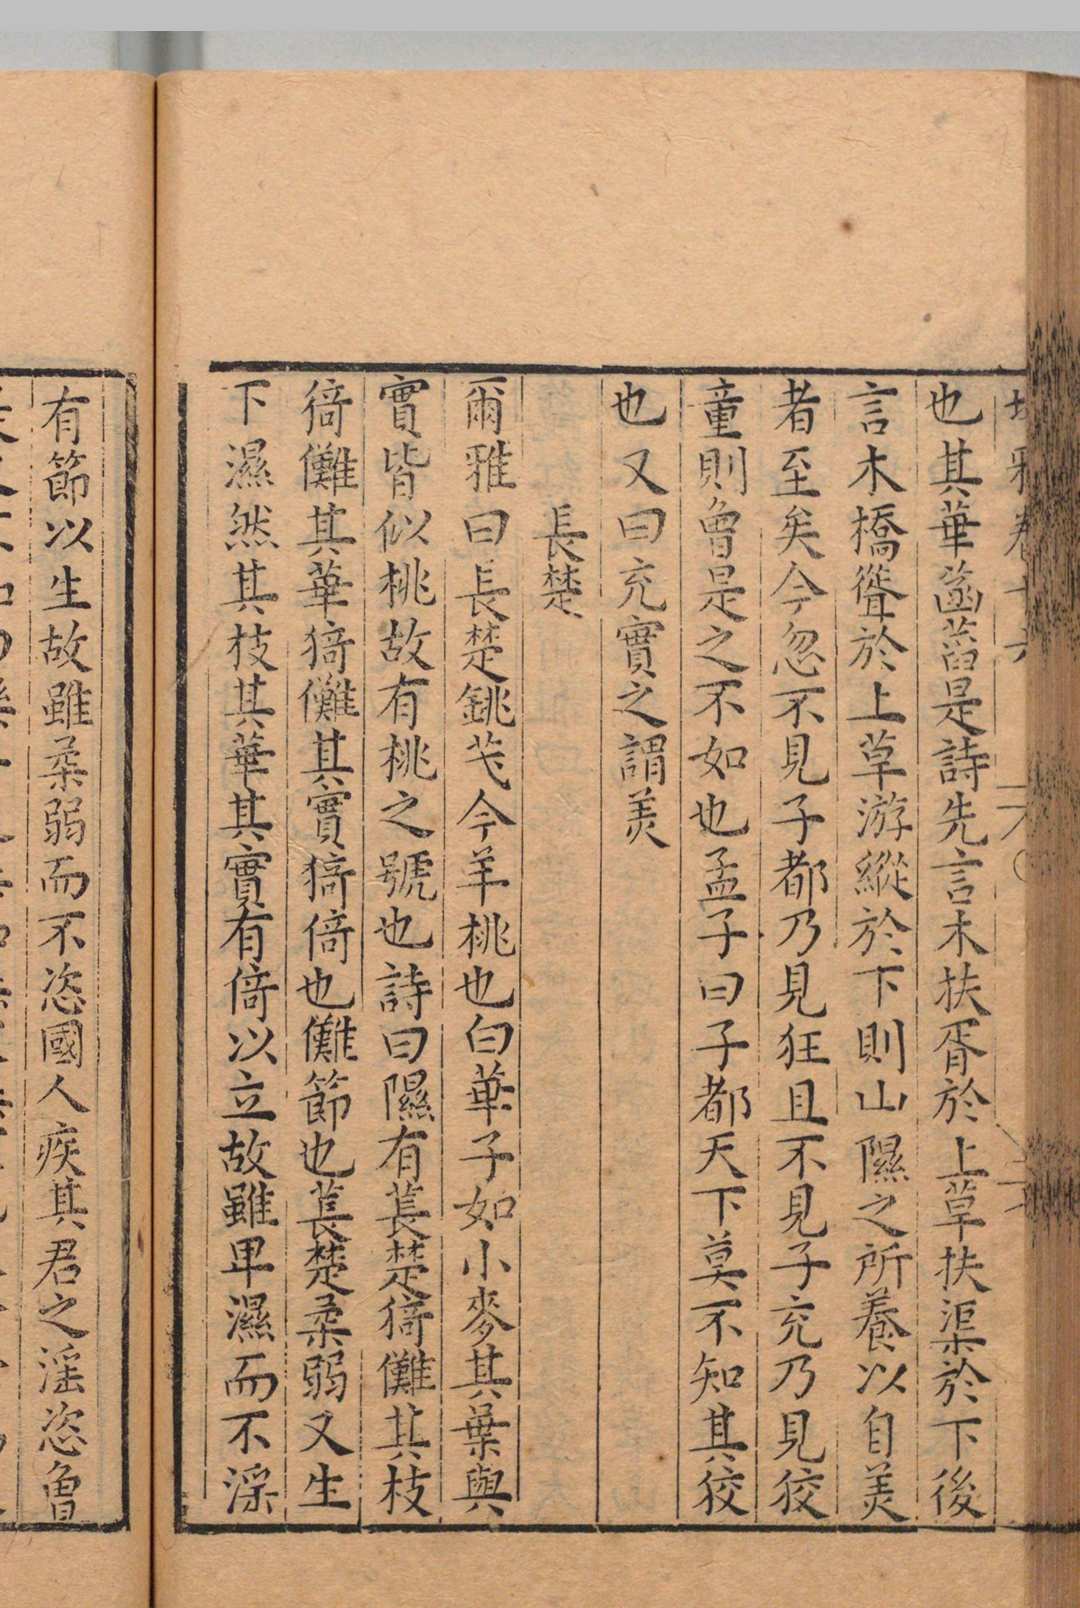 也其華菡萏是詩先言木扶胥於上草扶渠於下後
言木橋聳於上草游縱於下則山隰之所養以自美
者至矣今忽不見子都乃見狂且不見子充乃見狡
童則曾是之不如也孟子曰子都天下莫不知其狡
也又曰充實之謂美
長楚
爾雅曰長楚銚芅今羊桃也白華子如小麥其葉與
實皆似桃故有桃之號也詩曰隰有萇楚猗儺其枝
猗儺其華猗儺其實猗倚也儺節也萇楚柔弱又生
下濕然其枝其華其實有倚以立故雖卑濕而不淫
有節以生故雖柔弱而不恣國人疾其君之淫恣曾